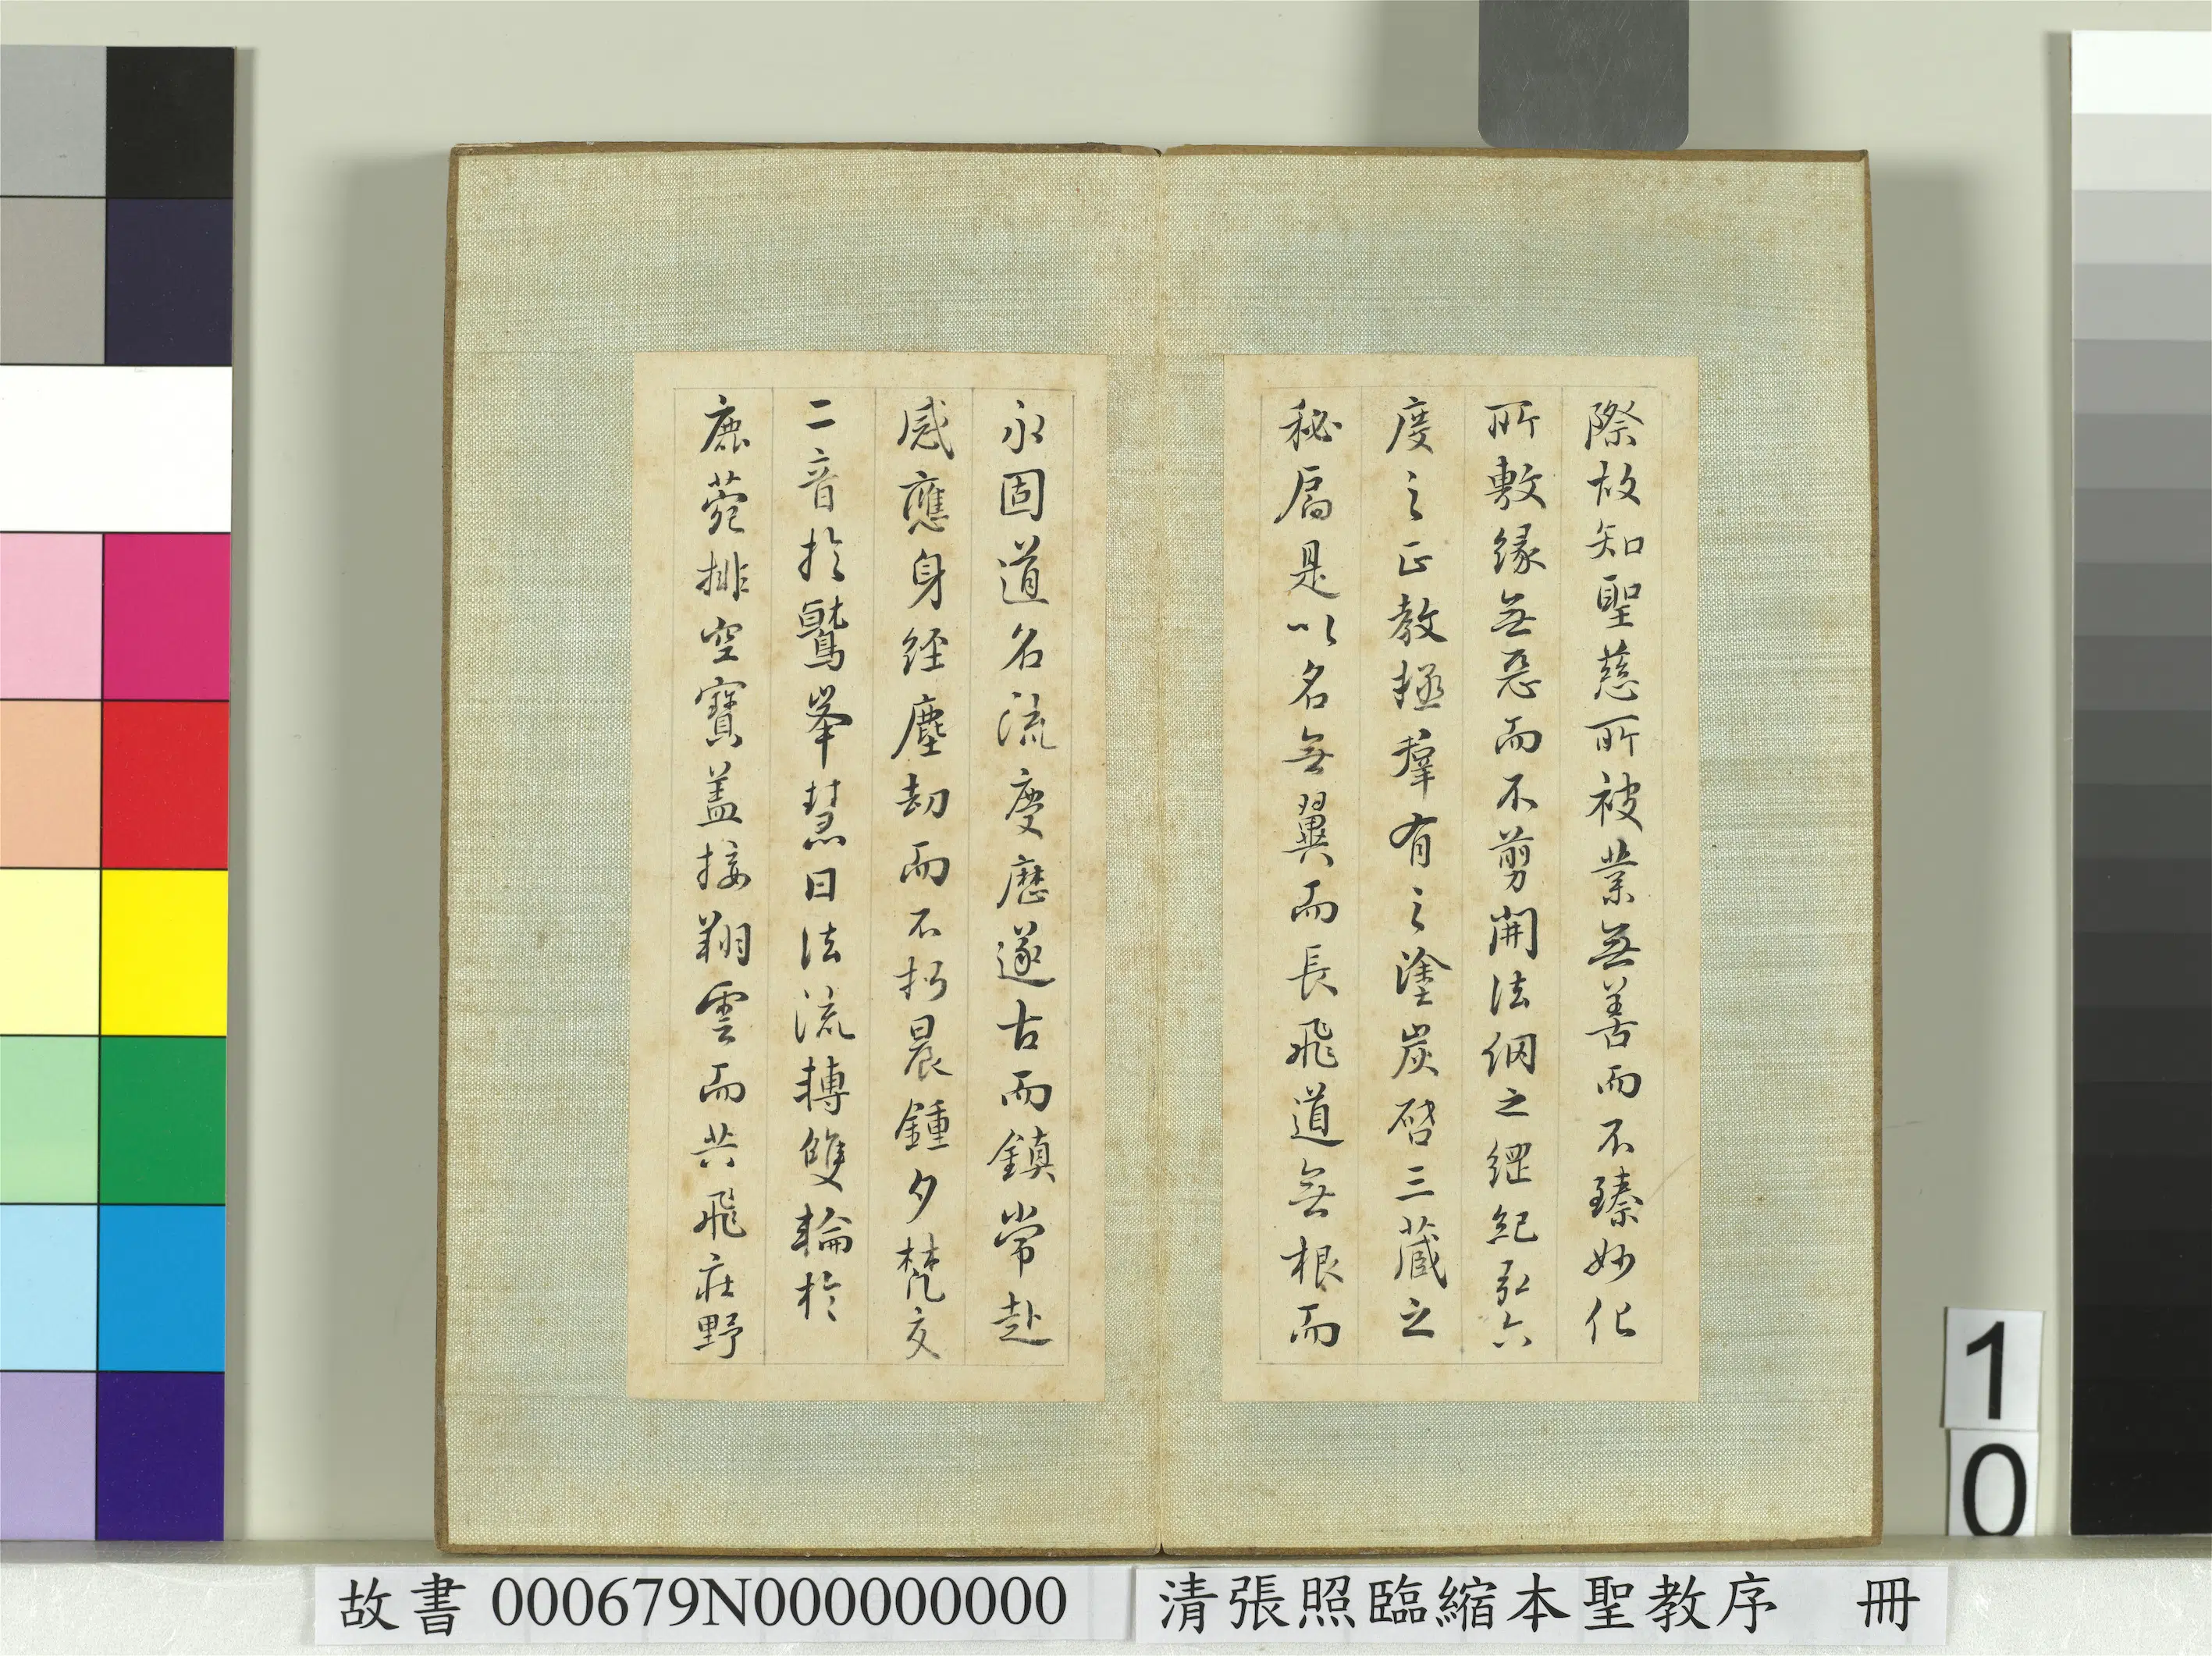 際故知聖慈所被業無善而不臻妙化
所敷緣無惡而不剪開法網之綱紀弘六
度之正教拯群有之塗炭啓三藏之
秘扃是以名無翼而長飛道無根而
永固道名流慶歷遂古而鎮常赴
感應身經塵劫而不朽晨鍾夕梵交
二音於鷲峯慧日法流轉雙輪於
鹿菀排空寶蓋接翔雲而共飛莊野
1
0
故書 000679N000000000
清張照臨縮本聖教序 冊